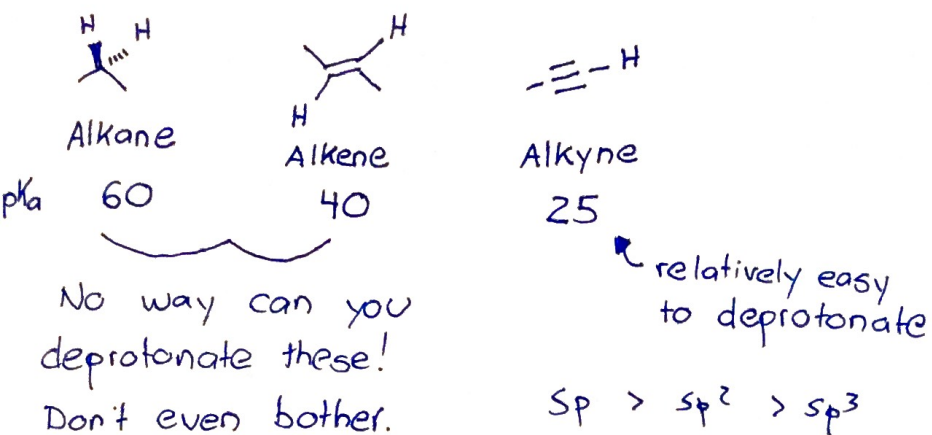 H H
H
H
H
Alkane
Alkene
Alkyne
pKa 60 40 25
relatively easy
to deprotonate
No way can you
deprotonate these!
Don't even bother.
sp > sp² > sp³